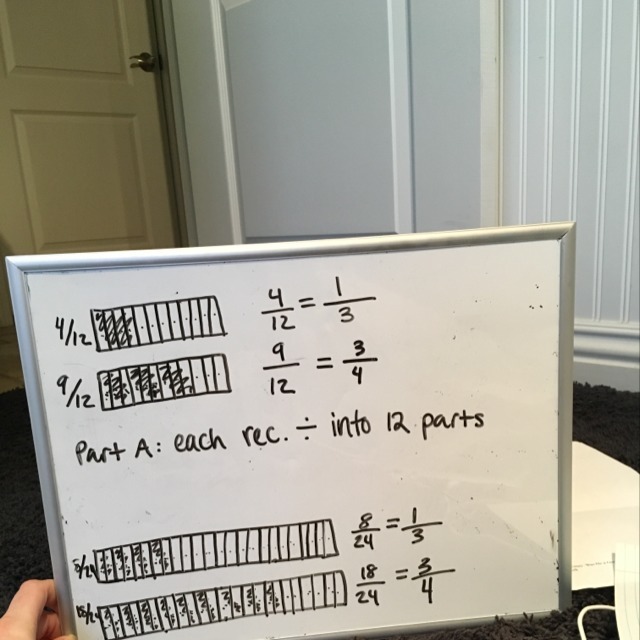 4/12 4/12 = 1/3
9/12 9/12 = 3/4
Part A: each rec. ÷ into 12 parts
8/24 8/24 = 1/3
18/24 = 3/4